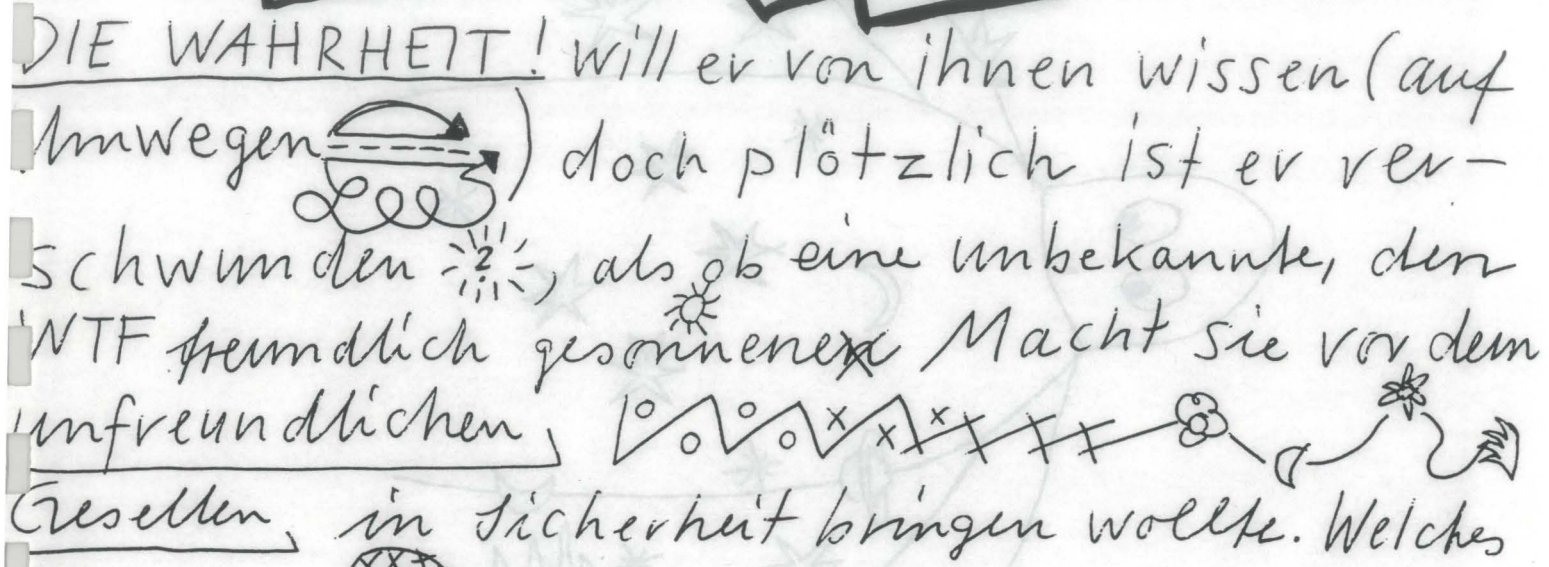 DIE WAHRHEIT! will er von ihnen wissen (auf
Umwegen ) doch plötzlich ist er ver-
schwunden ?, als ob eine unbekannte, den
NTF freundlich gesonnene Macht sie vor dem
unfreundlichen
Gesellen in Sicherheit bringen wollte. Welches